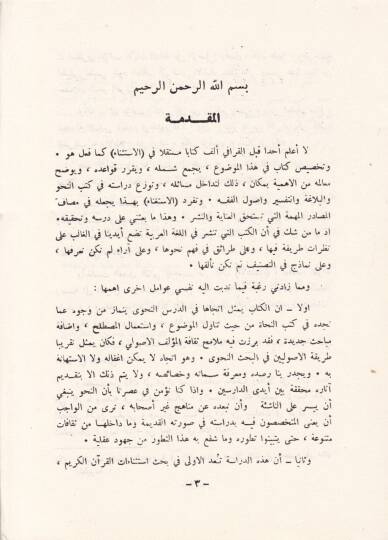 بسم الله الرحمن الرحيم
المقـدمـة
لا أعلم أحدا قبل القرافي ألف كتابا مستقلا في (الاستثناء) كما فعل هو •
وتخصيص كتاب في هذا الموضوع ، يجمع شمله ، ويقرر قواعده ، ويوضح
معالمه من الاهمية بمكان ، ذلك لتداخل مسائله ، وتوزع دراسته في كتب النحو
والبلاغة والتفسير واصول الفقه • وتفرد (الاستغناء) بهذا يجعله في مصاف
المصادر المهمة التي تستحق العناية والنشر • وهذا ما بعثني على درسه وتحقيقه•
اذ ما من شك في أن الكتب التي تنشر في اللغة العربية تضع أيدينا في الغالب على
نظرات طريفة فيها ، وعلى طرائق في فهم نحوها ، وعلى آراء لم نكن نعرفها ،
وعلى نماذج في التصنيف لم نكن نألفها •
ومما زادني رغبة فيما ندبت اليه نفسي عوامل اخرى اهمها :
اولا ــ ان الكتاب يمثل اتجاها في الدرس النحوي يمتاز من وجوه عما
نجده في كتب النحاة من حيث تناول الموضوع ، واستعمال المصطلح ، واضافة
مباحث جديدة ، فقد برزت فيه ملامح ثقافة المؤلف الاصولي ، فكان يمثل تقريبا
طريقة الاصوليين في البحث النحوي • وهو اتجاه لا يمكن اغفاله ولا الاستهانة
به • ويجدر بنا رصده ومعرفة سماته وخصائصه ، ولا يتم ذلك الا بتقديم
آثاره محققة بين أيدي الدارسين • واذا كنا نؤمن في عصرنا بأن النحو ينبغي
أن ييسر على الناشئة وأن نبعده عن مناهج غير أصحابه ، نرى من الواجب
أن يعنى المتخصصون فيه بدراسته في صورته القديمة وما داخلها من ثقافات
متنوعة ، حتى يتبينوا تطوره وما شفع به هذا التطور من جهود عقلية •
وثانيا ــ أن هذه الدراسة تُعد الاولى في بحث استثناءات القرآن الكريم ،
ــ ٣ ــ